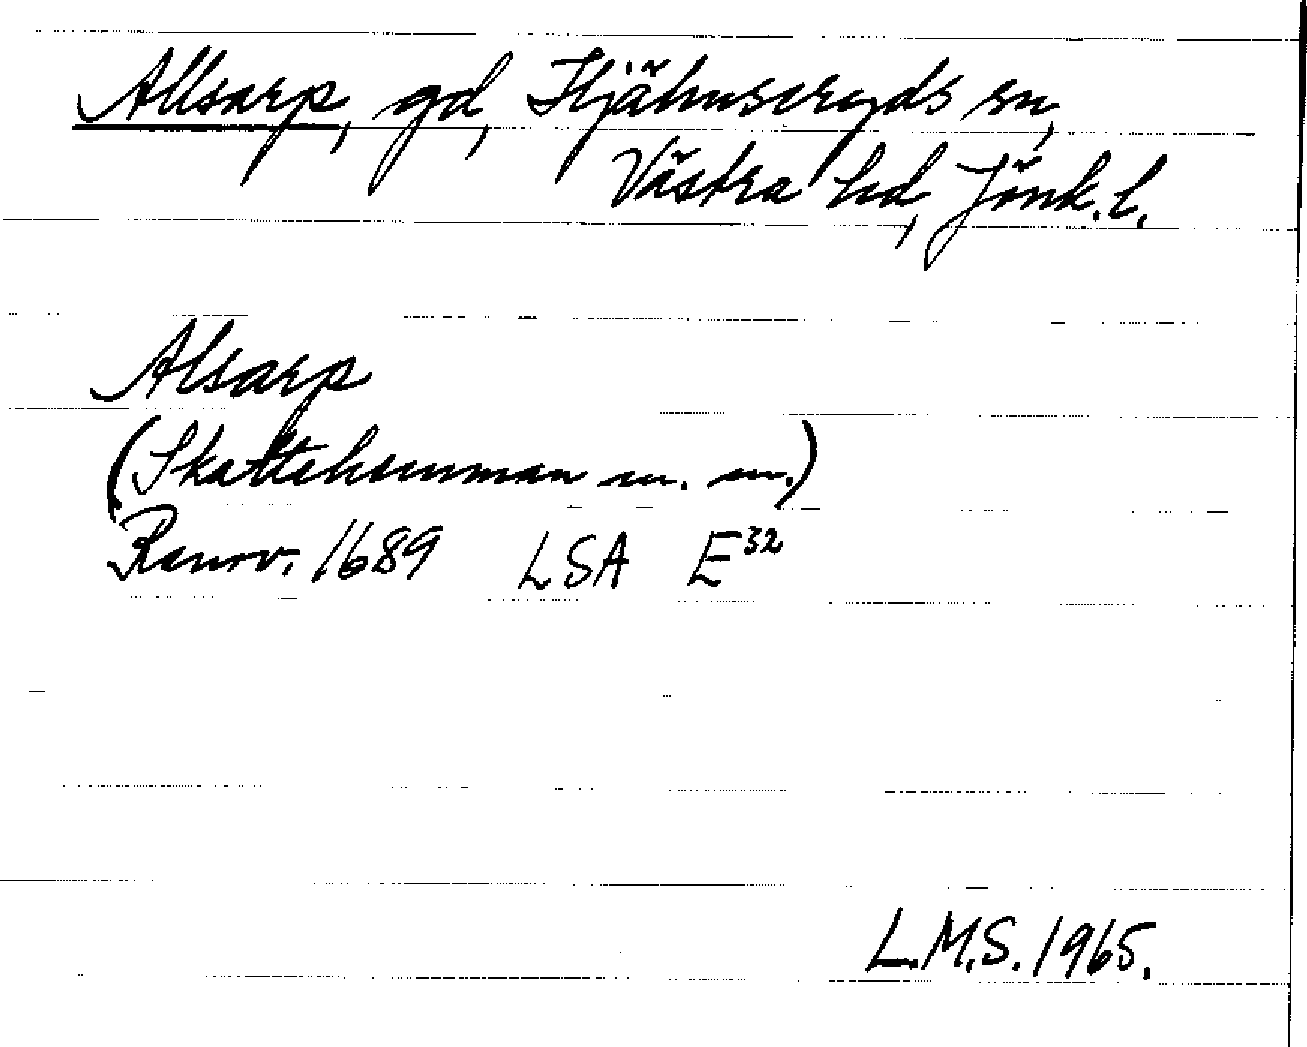 Allsarp, gd, Hjälmseryds sn,
Västra hd, Jönk. l.
Alsarp
(Skattehemman m. m.)
Renov. 1689 LSA E³²
L.M.S. 1965.